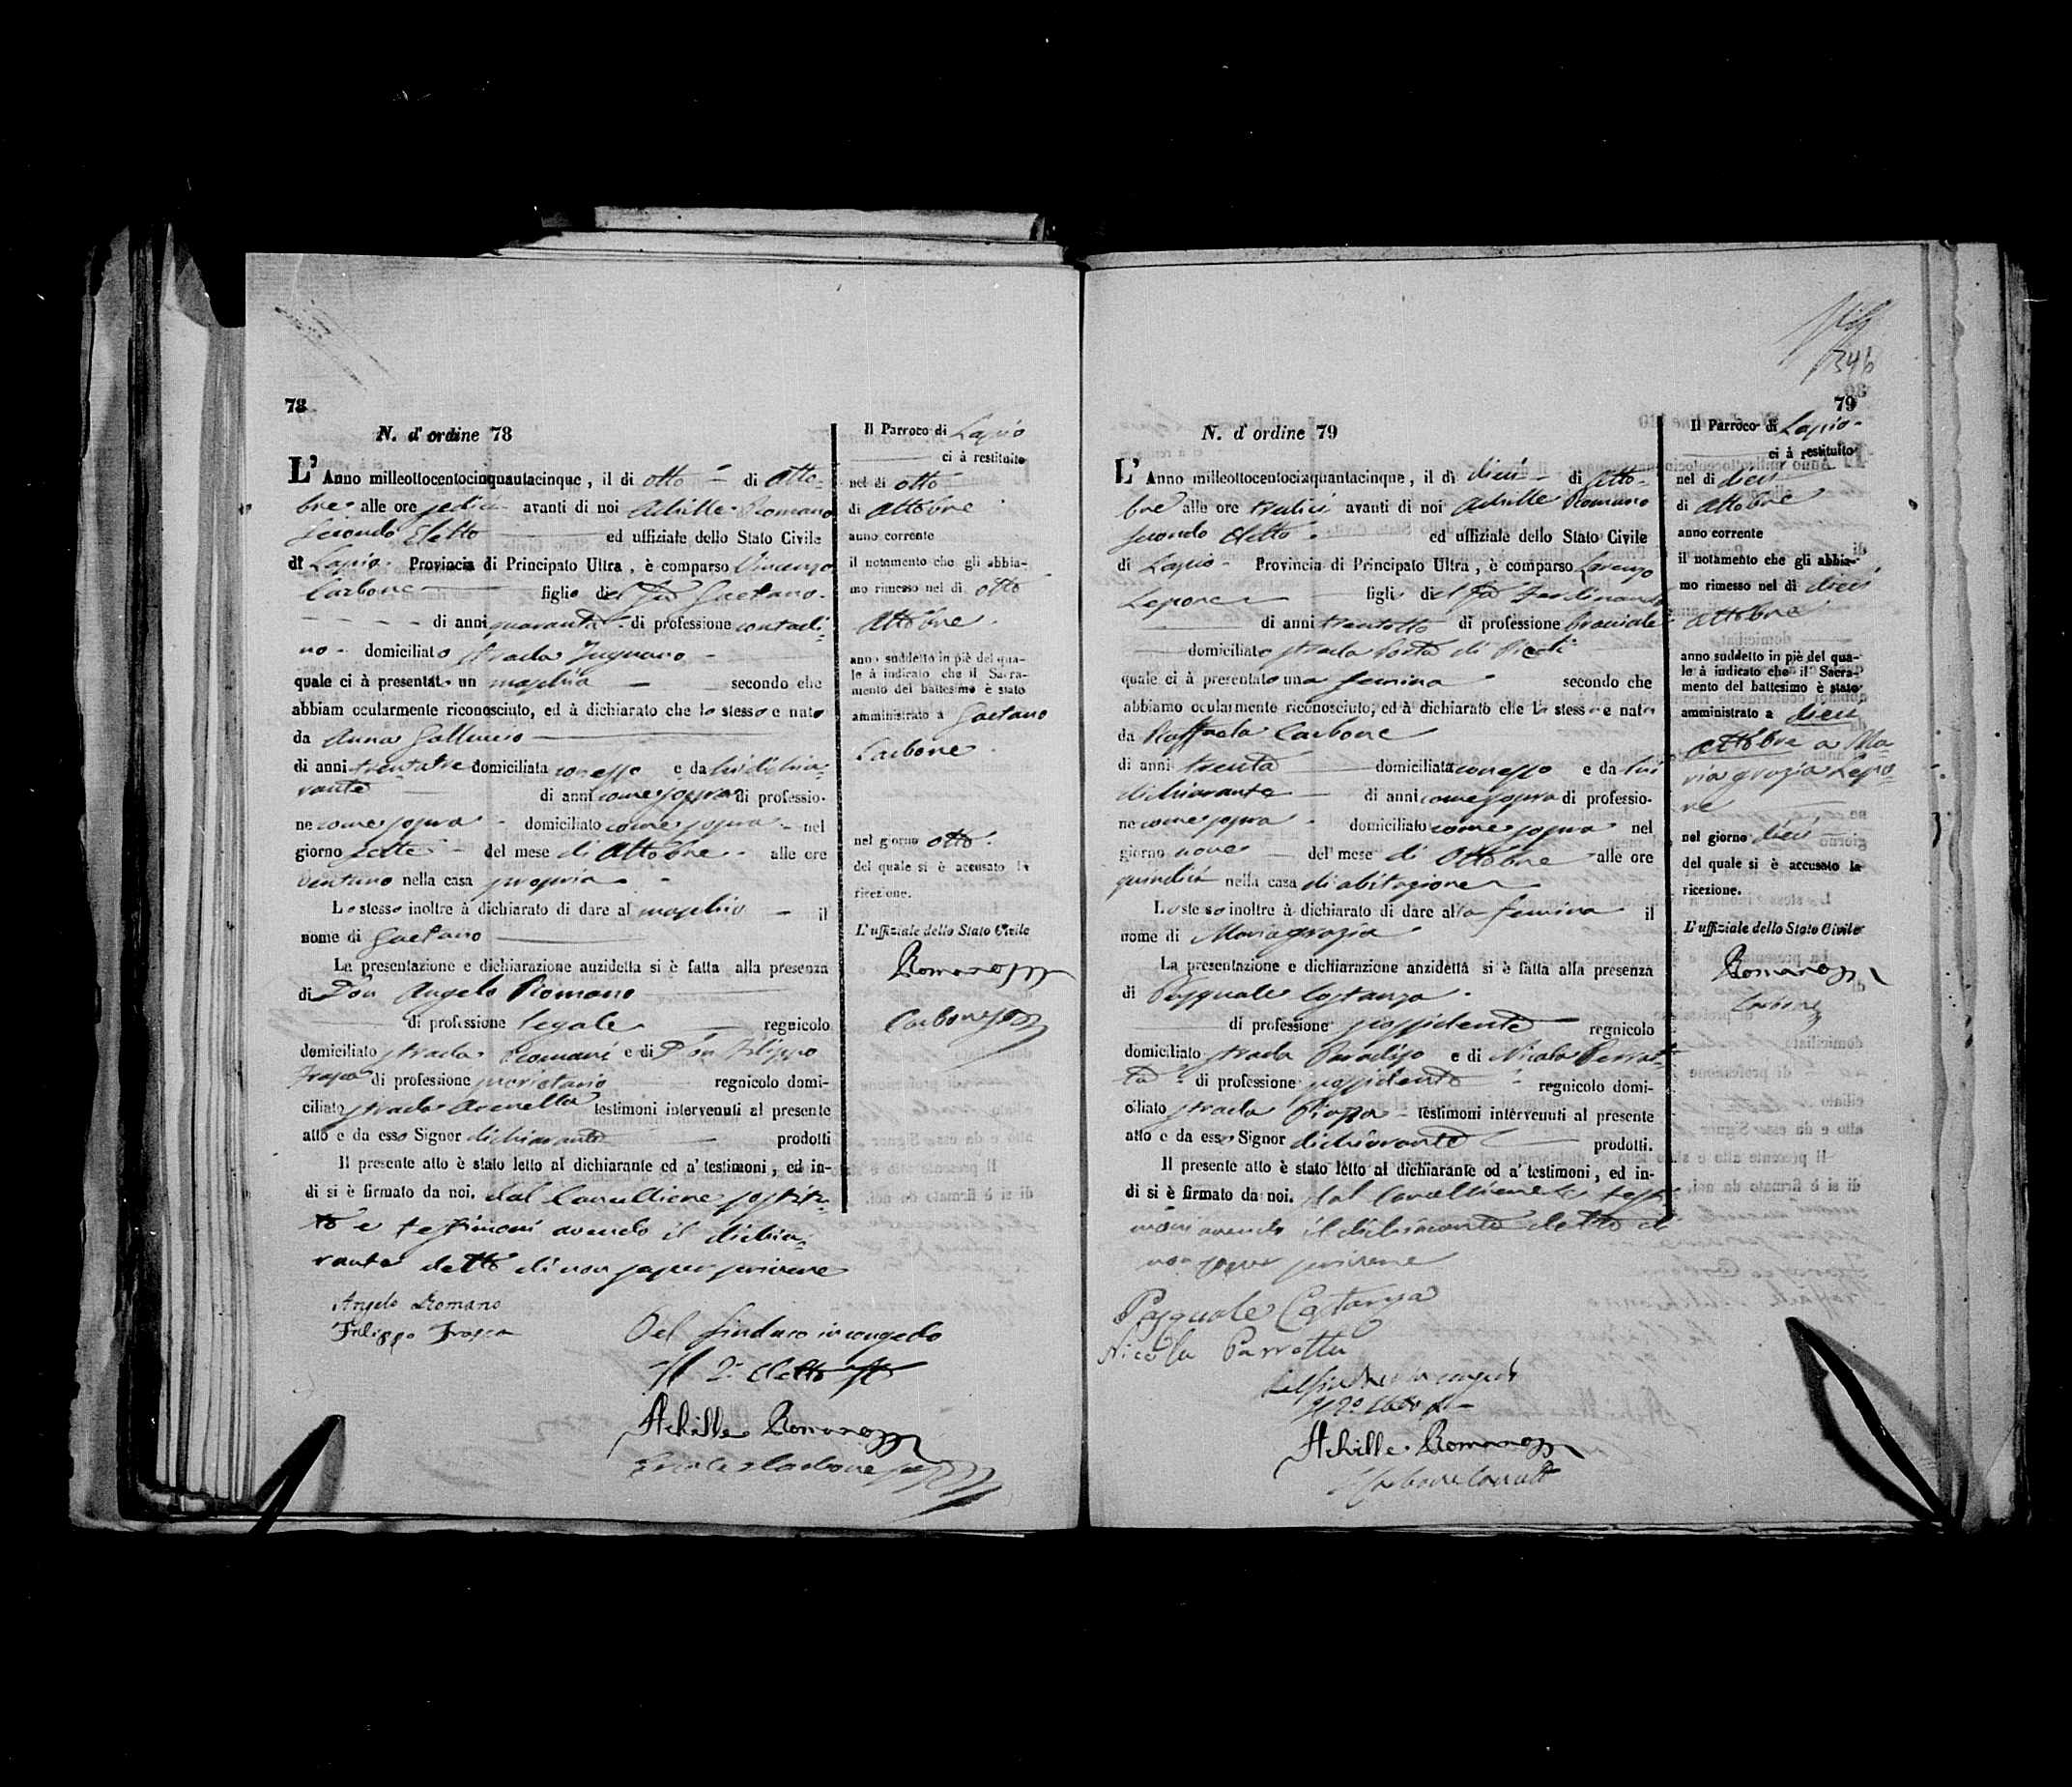 78
N. d'ordine 78
L'Anno milleottocentocinquantacinque, il di otto di otto-
bre alle ore sedici avanti di noi Achille Romano
secondo Eletto ed uffiziale dello Stato Civile
di Lapio Provincia di Principato Ultra, è comparso Vincenzo
Carbone figlio del fu Gaetano
di anni quaranta di professione contadi-
no domiciliato strada
quale ci à presentato un maschio secondo che
abbiam ocularmente riconosciuto, ed à dichiarato che lo stesso e nato
da Anna Galluccio
di anni trentatre domiciliata con esso e da lui dichia-
rante di anni come sopra di professio-
ne come sopra domiciliato come sopra nel
giorno sette del mese di Ottobre alle ore
ventuno nella casa propria
Lo stesso inoltre à dichiarato di dare al maschio il
nome di Gaetano
La presentazione e dichiarazione anzidetta si è fatta alla presenza
di Don Angelo Romano
di professione legale regnicolo
domiciliato strada Romani e di Don Filippo
di professione regnicolo domi-
ciliato strada testimoni intervenuti al presente
atto e da esso Signor dichiarante prodotti
Il presente atto è stato letto al dichiarante ed a' testimoni, ed in-
di si è firmato da noi, dal Cancelliere sostitu-
to e testimoni avendo il dichia-
rante detto di non saper scrivere
Angelo Romano
Filippo
Del Sindaco in congedo
Il 2º Eletto
Achille Romano
Carbone
Il Parroco di Lapio
ci à restituito
nel di otto
di Ottobre
anno corrente
il notamento che gli abbia-
mo rimesso nel di otto
Ottobre
anno suddetto in piè del qua-
le à indicato che il Sacra-
mento del battesimo è stato
amministrato a Gaetano
Carbone
nel giorno otto
del quale si è accusato la
ricezione.
L'uffiziale dello Stato Civile
Romano
Carbone
346
79
N. d'ordine 79
L'Anno milleottocentocinquantacinque, il dì dieci di otto-
bre alle ore tredici avanti di noi Achille Romano
secondo Eletto ed uffiziale dello Stato Civile
di Lapio Provincia di Principato Ultra, è comparso Lorenzo
Lepore figlio del fu Ferdinando
di anni trentotto di professione bracciale
domiciliato strada Porta di
quale ci à presentato una femina secondo che
abbiamo ocularmente riconosciuto, ed à dichiarato che la stessa e nata
da Raffaela Carbone
di anni trenta domiciliata con esso e da lui
dichiarante di anni come sopra di professio-
ne come sopra domiciliato come sopra nel
giorno nove del mese di Ottobre alle ore
quindici nella casa di abitazione
Lo stesso inoltre à dichiarato di dare alla femina il
nome di Mariagrazia
La presentazione e dichiarazione anzidetta si è fatta alla presenza
di Pasquale Costanza
di professione possidente regnicolo
domiciliato strada Paradiso e di Nicola Parrot-
ta di professione possidente regnicolo domi-
ciliato strada Piazza testimoni intervenuti al presente
atto e da esso Signor dichiarante prodotti.
Il presente atto è stato letto al dichiarante ed a' testimoni, ed in-
di si è firmato da noi, dal Cancelliere e testi-
moni avendo il dichiarante detto di
non saper scrivere
Pasquale Costanza
Nicola Parrotta
Del Sindaco in congedo
Il 2º Eletto
Achille Romano
Carbone
Il Parroco di Lapio
ci à restituito
nel di dieci
di Ottobre
anno corrente
il notamento che gli abbia-
mo rimesso nel di dieci
Ottobre
anno suddetto in piè del qua-
le à indicato che il Sacra-
mento del battesimo è stato
amministrato a dieci
ottobre a Ma-
ria grazia Lepo-
re
nel giorno dieci
del quale si è accusato la
ricezione.
L'uffiziale dello Stato Civile
Romano
Carbone